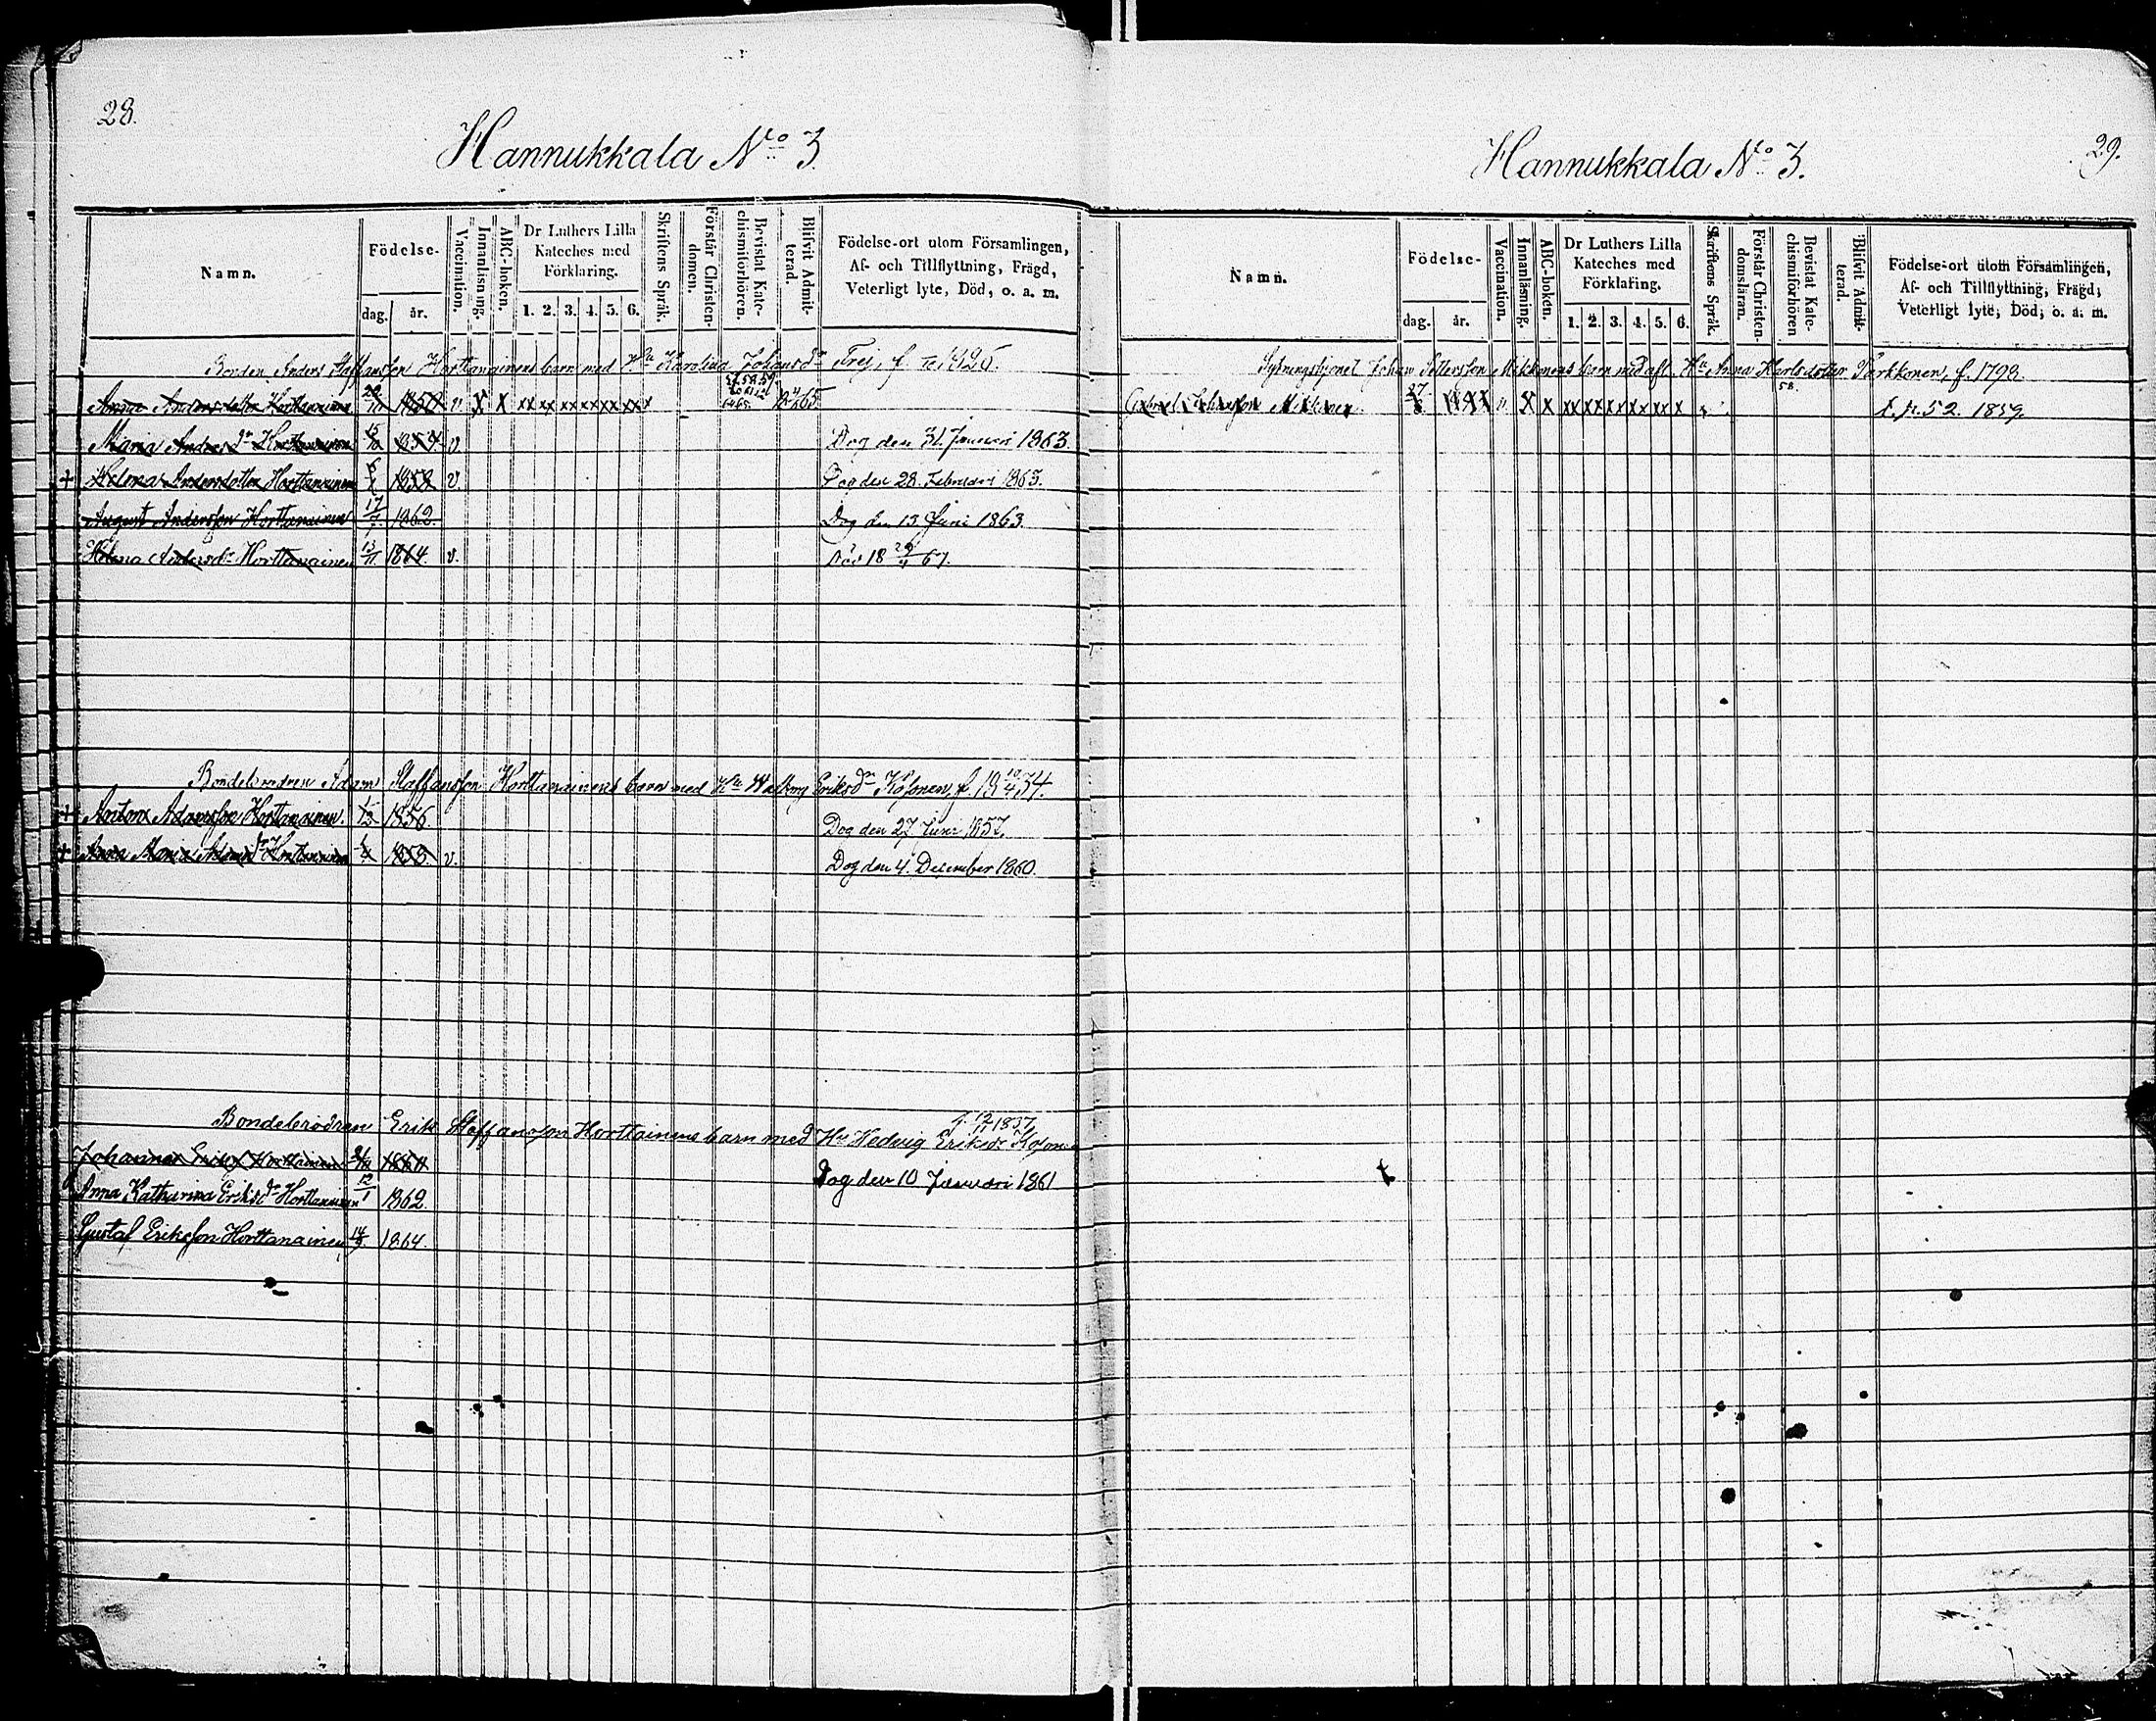 28.
Hannukkala No 3.
Namn.
Födelse-
dag.
år.
Vaccination.
Innanläsning.
ABC-boken.
Dr Luthers Lilla Kateches med Förklaring.
1. 2. 3. 4. 5. 6.
Skriftens Språk.
Förstår Christen-domen.
Bevistat Kate-chismiförhören.
Blifvit Admit-terad.
Födelse-ort utom Församlingen,
Af- och Tillflyttning, Frägd,
Veterligt lyte, Död, o. a. m.
Bonden Anders Staffansson Horttanainens barn med Hu Karolina Johansdr Frej, f. 1826.
Anna Andersdotter Horttanainen 1850 v. X X xx xx xx xx xx xx x 65
Maria Andersdr Horttanainen 15/10 1854. v. Dog den 31. Januari 1863.
+ Helena Andersdotter Horttanainen 1858 v. Dog den 28. Februari 1863.
August Andersson Horttanainen 17/7 1862. Dog den 13 Juni 1863.
Helena Andersdr Horttanainen 13/11 1864. v. Död 18 29/4 67.
Bondebrodren Adam Staffansson Horttanainens barn med Hu Walborg Eriksdr Kosonen, f. 18 10/4 34.
+ Anton Adamsson Horttanainen. 1856. Dog den 27 Juni 1857.
+ Anna Maria Adamsdr Horttanainen 1858. v. Dog den 4. December 1860.
f. 12/11 1837
Bondebrodren Erik Staffansson Horttainens barn med Hu Hedvig Eriksdr Kosonen
Johannes Eriksson Horttainen 1860 Dog den 10 Januari 1861
Anna Katharina Eriksdr Horttanainen 12/1 1862.
Gustaf Eriksson Horttanainen 14/9 1864.
29.
Hannukkala No 3.
Namn.
Födelse-
dag.
år.
Vaccination.
Innanläsning.
ABC-boken.
Dr Luthers Lilla Kateches med Förklaring.
1. 2. 3. 4. 5. 6.
Skriftens Språk.
Förstår Christen-domsläran.
Bevistat Kate-chismiförhören
Blifvit Admit-terad.
Födelse-ort utom Församlingen,
Af- och Tillflyttning, Frägd,
Veterligt lyte, Död, o. a. m.
Johan Pettersson Mikkonens barn med afl. Hu Anna Karlsdotter Parkkonen, f. 1798.
Gabriel Johansson Mikkonen 27 X x xx xx xx xx xx x 58. 52. 1859.